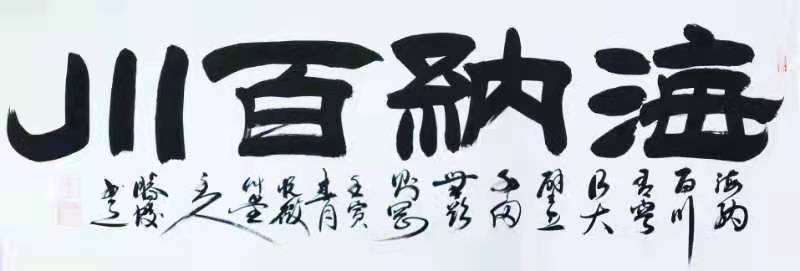 海納百川
海納
百川
有容
乃大
壁立
千仞
無欲
則剛
壬寅
春月
主人
書